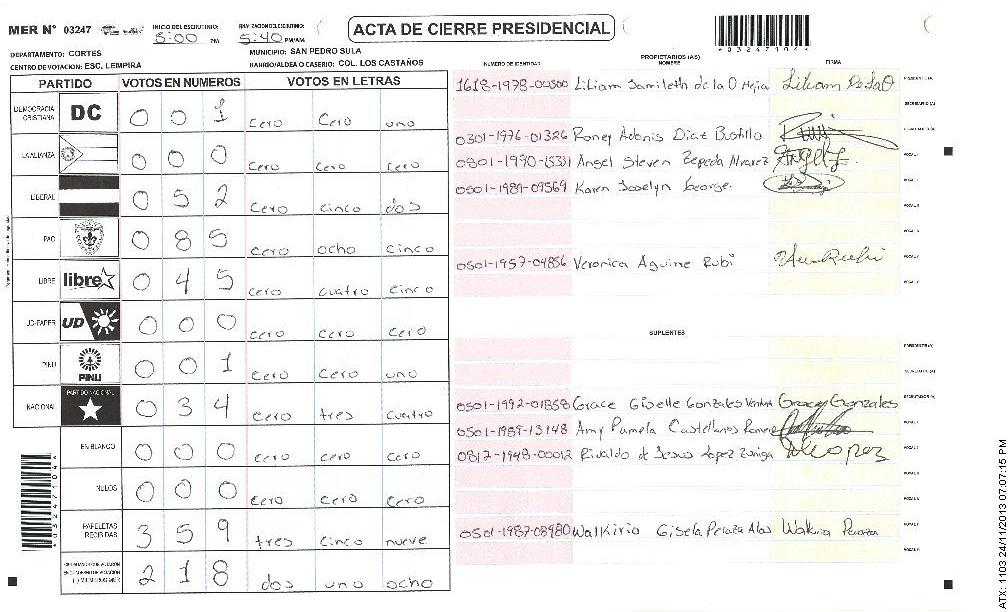 MER N° 03247 INICIO DEL ESCRUTINIO: 5:00 PM FINALIZACION DEL ESCRUTINIO: 5:40 PM/AM
ACTA DE CIERRE PRESIDENCIAL
032471044
DEPARTAMENTO: CORTES MUNICIPIO: SAN PEDRO SULA
CENTRO DE VOTACION: ESC. LEMPIRA BARRIO/ALDEA O CASERIO: COL. LOS CASTAÑOS
PARTIDO VOTOS EN NUMEROS VOTOS EN LETRAS
DEMOCRACIA CRISTIANA DC 0 0 1 cero cero uno
LA ALIANZA 0 0 0 cero cero cero
LIBERAL 0 5 2 cero cinco dos
PAC 0 8 5 cero ocho cinco
LIBRE libre 0 4 5 cero cuatro cinco
UD-FAPER UD 0 0 0 cero cero cero
PINU PINU 0 0 1 cero cero uno
NACIONAL PARTIDO NACIONAL 0 3 4 cero tres cuatro
EN BLANCO 0 0 0 cero cero cero
NULOS 0 0 0 cero cero cero
PAPELETAS RECIBIDAS 3 5 9 tres cinco nueve
2 1 8 dos uno ocho
032471044
NUMERO DE IDENTIDAD PROPIETARIOS (AS) NOMBRE FIRMA
1618-1978-00300 Liliam Samileth de la O Mejia Liliam De La O PRESIDENTE(A)
SECRETARIO (A)
0301-1976-01326 Roney Adonis Diaz Bustillo ESCRUTADOR (A)
0801-1990-15331 Angel Steven Zepeda Alvarez Angel Z. VOCAL I
0501-1989-09569 Karen Joselyn George. VOCAL II
VOCAL III
0501-1957-04856 Veronica Aguirre Rubi VOCAL IV
VOCAL V
SUPLENTES
PRESIDENTE(A)
SECRETARIO (A)
0501-1992-01358 Grace Giselle Gonzales Ventura Grace Gonzales ESCRUTADOR (A)
0501-1989-13148 Amy Pamela Castellanos Romero VOCAL I
0812-1948-00012 Rivaldo de Jesus Lopez Zuniga VOCAL II
VOCAL III
VOCAL IV
0501-1987-08980 Walkiria Gisela Peraza Alas Walkiria Peraza VOCAL V
ATX: 1103 24/11/2013 07:07:15 PM